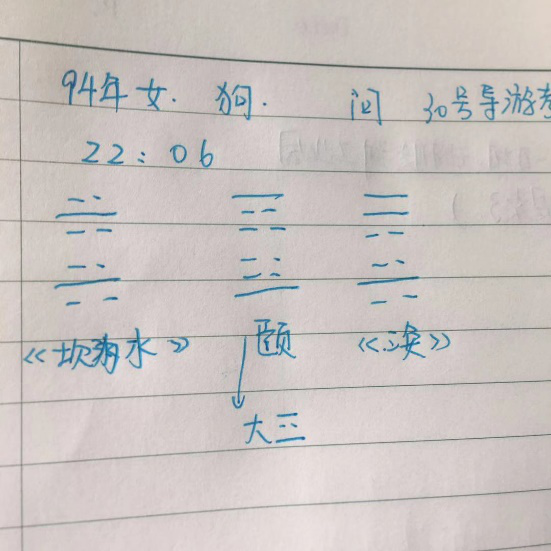 94年女. 狗. 问 30号导游考
22:06
《坎为水》 颐 《涣》
大三